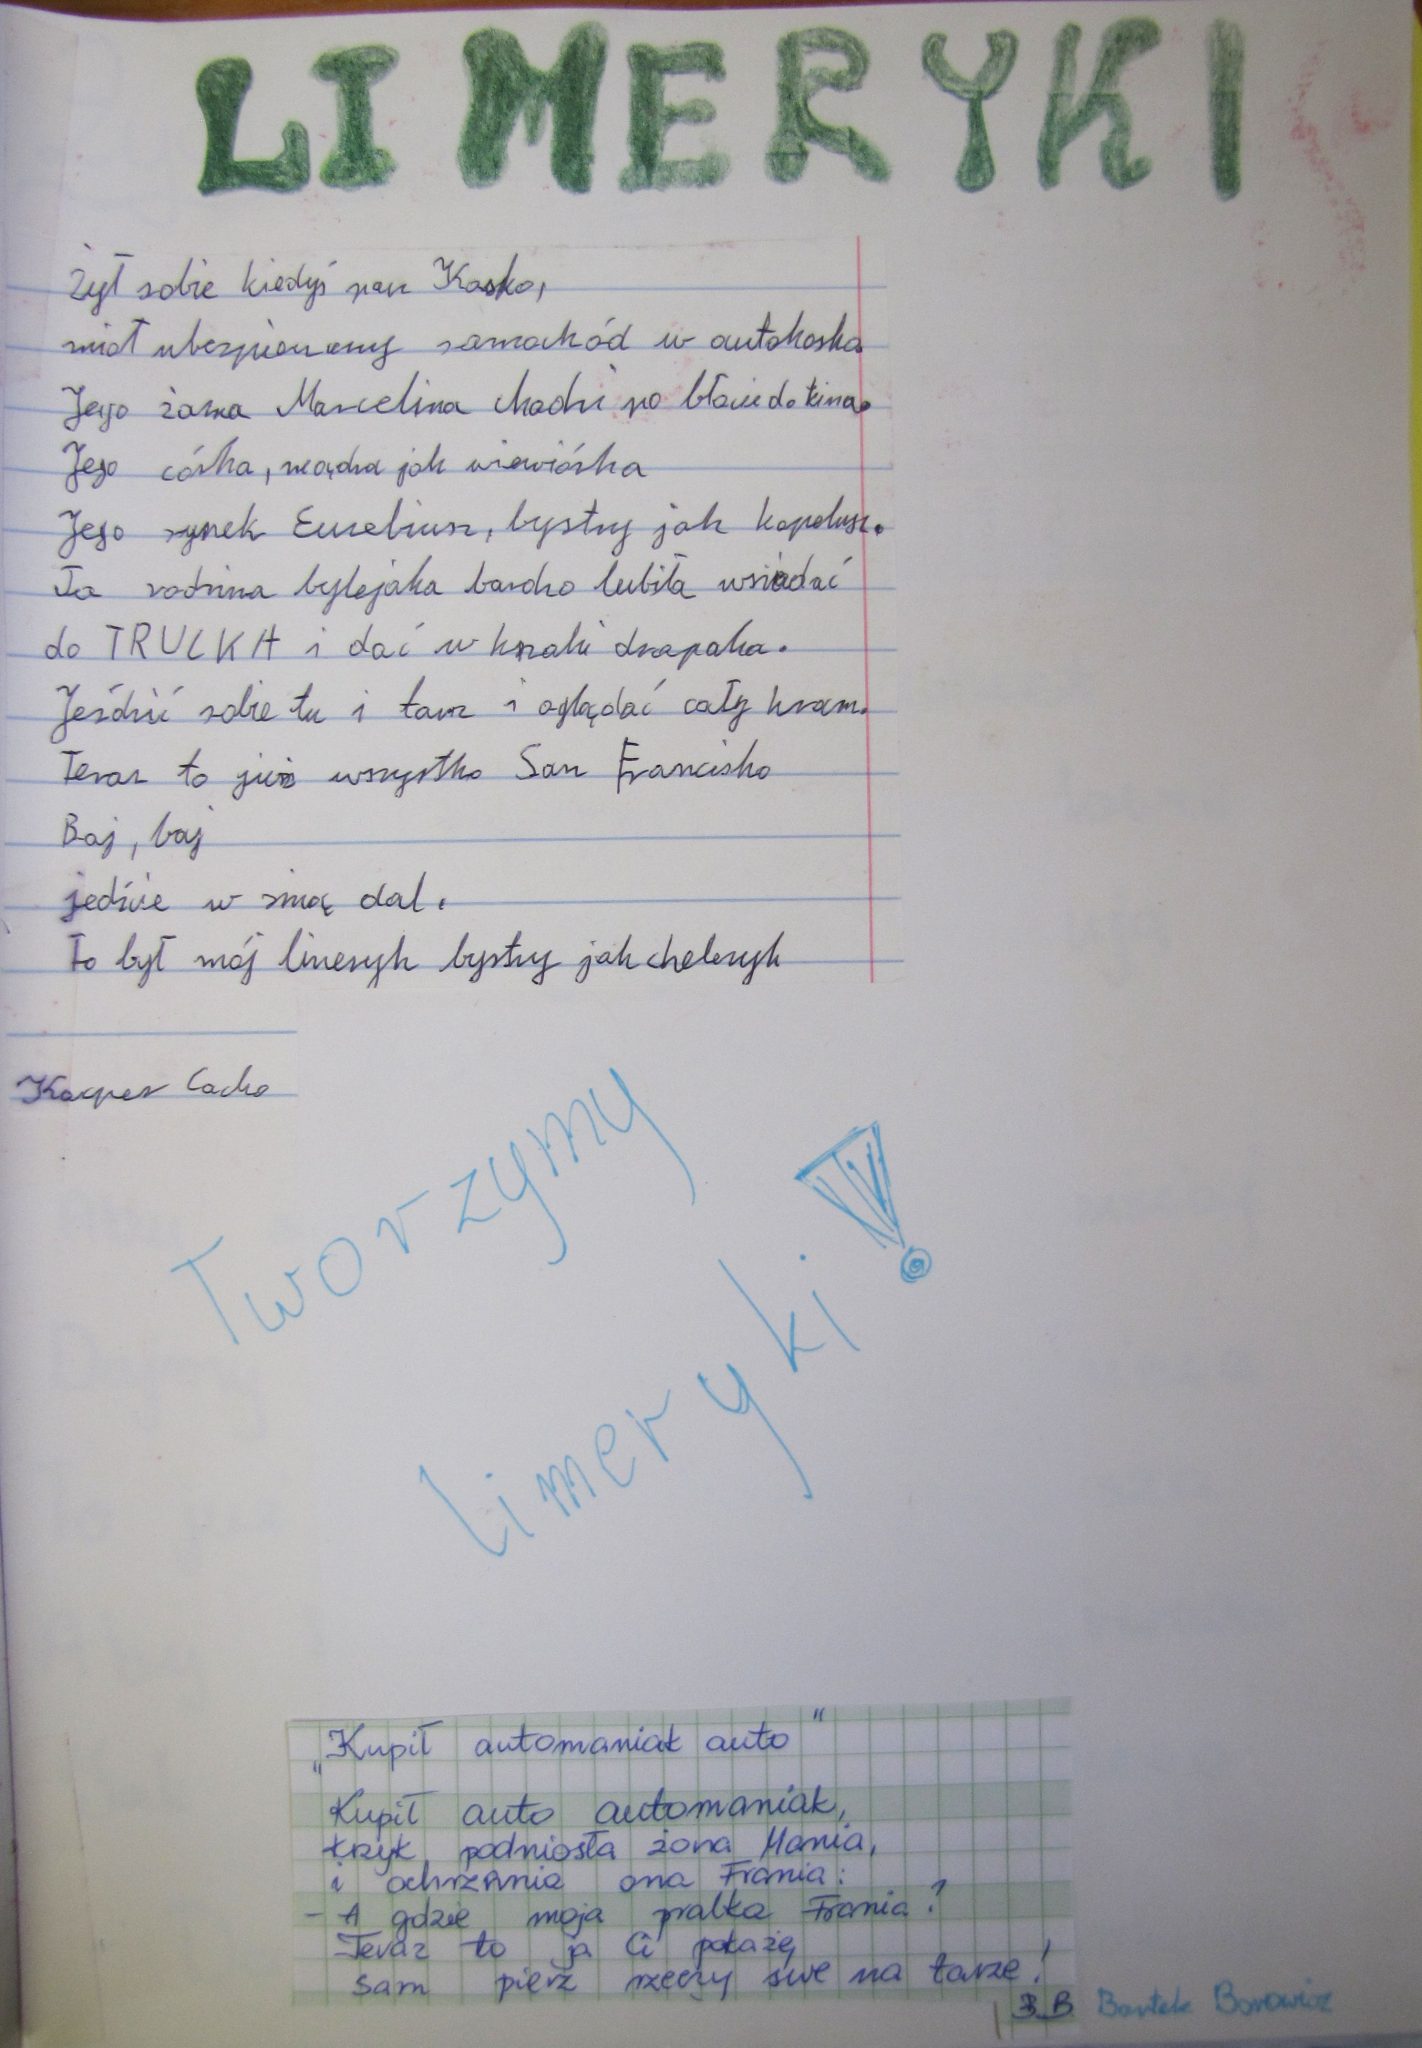 LIMERYKI
Żył sobie kiedyś pan Kasko,
miał ubezpieczony samochód w autokasko
Jego żona Marcelina chodzi po błocie do kina.
Jego córka, mądra jak wiewiórka
Jego synek Euzebiusz, bystry jak kapelusz.
Ta rodzina bylejaka bardzo lubiła wsiadać
do TRUCKA i dać w krzaki drapaka.
Jeździć sobie tu i tam i oglądać cały kram.
Teraz to już wszystko San Francisko
Baj, baj
jedzie w siną dal.
To był mój limeryk bystry jak choleryk
Kacper Cacko
Tworzymy
limeryki!
„Kupił automaniak auto"
Kupił auto automaniak,
krzyk podniosła żona Mania,
i ochrzania ona Frania:
- A gdzie moja pralka Frania?
Teraz to ja Ci pokażę
sam pierz rzeczy swe na tarze!
B.B. Bartek Borowicz